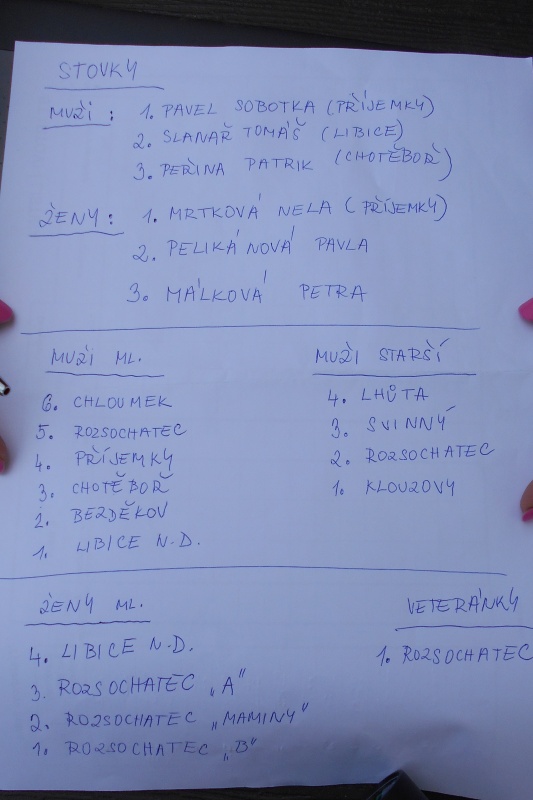 STOVKY
MUŽI : 1. PAVEL SOBOTKA (PŘÍJEMKY)
2. SLANAŘ TOMÁŠ (LIBICE)
3. PEŘINA PATRIK (CHOTĚBOŘ)
ŽENY : 1. MRTKOVÁ NELA (PŘÍJEMKY)
2. PELIKÁNOVÁ PAVLA
3. MÁLKOVÁ PETRA
MUŽI ML.
6. CHLOUMEK
5. ROZSOCHATEC
4. PŘÍJEMKY
3. CHOTĚBOŘ
2. BEZDĚKOV
1. LIBICE N.D.
MUŽI STARŠÍ
4. LHŮTA
3. SVINNÝ
2. ROZSOCHATEC
1. KLOUZOVY
ŽENY ML.
4. LIBICE N.D.
3. ROZSOCHATEC „A"
2. ROZSOCHATEC „MAMINY"
1. ROZSOCHATEC „B"
VETERÁNKY
1. ROZSOCHATEC